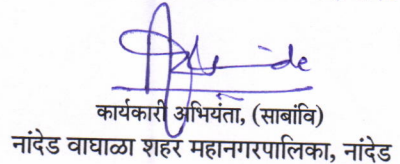 कार्यकारी अभियंता, (साबांवि)
नांदेड वाघाळा शहर महानगरपालिका, नांदेड